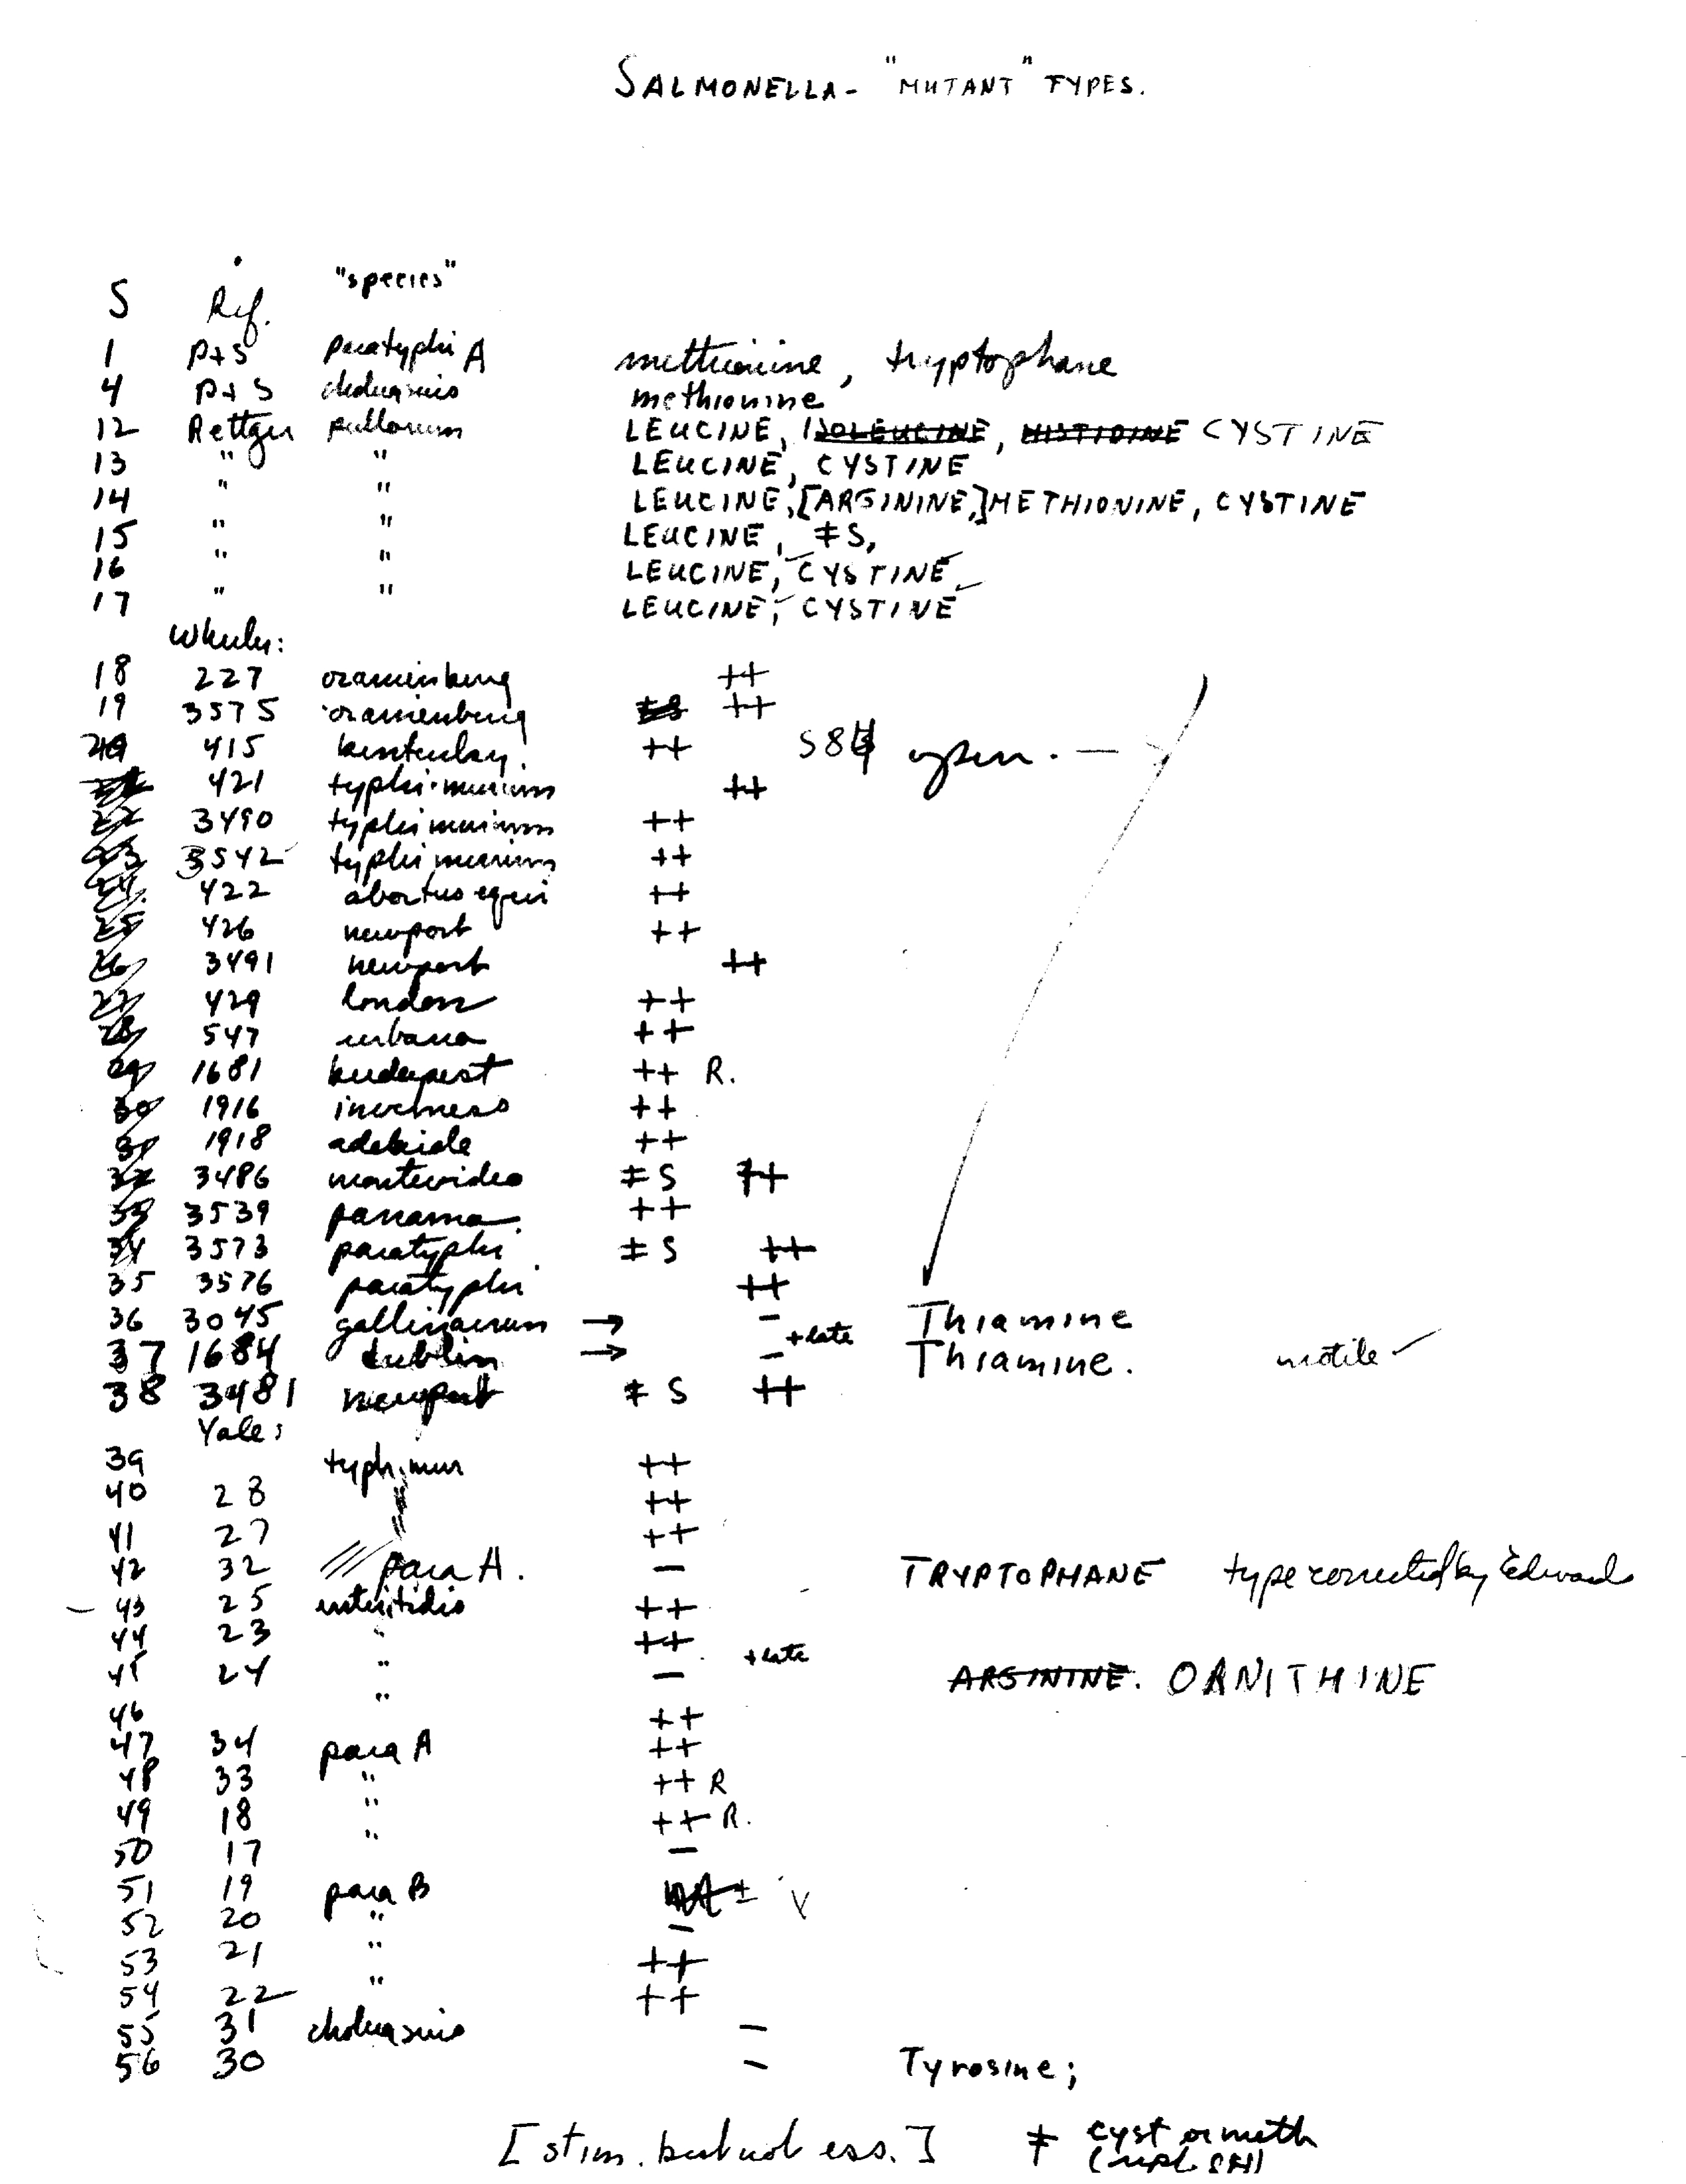 SALMONELLA - "MUTANT" TYPES.
S Ref. "species"
1 P+S paratyphi A methionine, tryptophane
4 P+S cholerasuis methionine
12 Rettger pullorum LEUCINE, ISOLEUCINE, HISTIDINE CYSTINE
13 " " LEUCINE, CYSTINE
14 " " LEUCINE, [ARGININE,] METHIONINE, CYSTINE
15 " " LEUCINE, ≠S,
16 " " LEUCINE, CYSTINE
17 " " LEUCINE, CYSTINE
18 227 oranienburg ++
19 3575 oranienburg ++
20 415 kentucky. ++ S84
421 typhi-murium ++
22 3490 typhimurium ++
23 3542 typhimurium ++
24 422 abortus equi ++
25 426 newport ++
26 3491 newport ++
27 429 london ++
28 547 urbana ++
29 1681 budapest ++ R.
30 1916 inverness ++
31 1918 adelaide ++
32 3486 montevideo ≠ S ++
33 3539 panama. ++
34 3573 paratyphi ≠ S ++
35 3576 paratyphi ++
36 3045 gallinarum → - Thiamine
37 1684 dublin → - +late Thiamine. motile ✓
38 3481 newport ≠ S ++
Yale:
39 typhimur ++
40 28 ++
41 27 ++
42 32 para A. - TRYPTOPHANE type corrected by Edwards
43 25 enteritidis ++
44 23 " ++
45 24 " - +late ARGININE. ORNITHINE
46 " ++
47 34 para A ++
48 33 " ++ R
49 18 " ++ R.
50 17 " -
51 19 para B ± V
52 20 " -
53 21 " ++
54 22 " ++
55 31 cholerasuis -
56 30 - Tyrosine;
[stim. but not ess.] ≠ cyst or meth
SH)